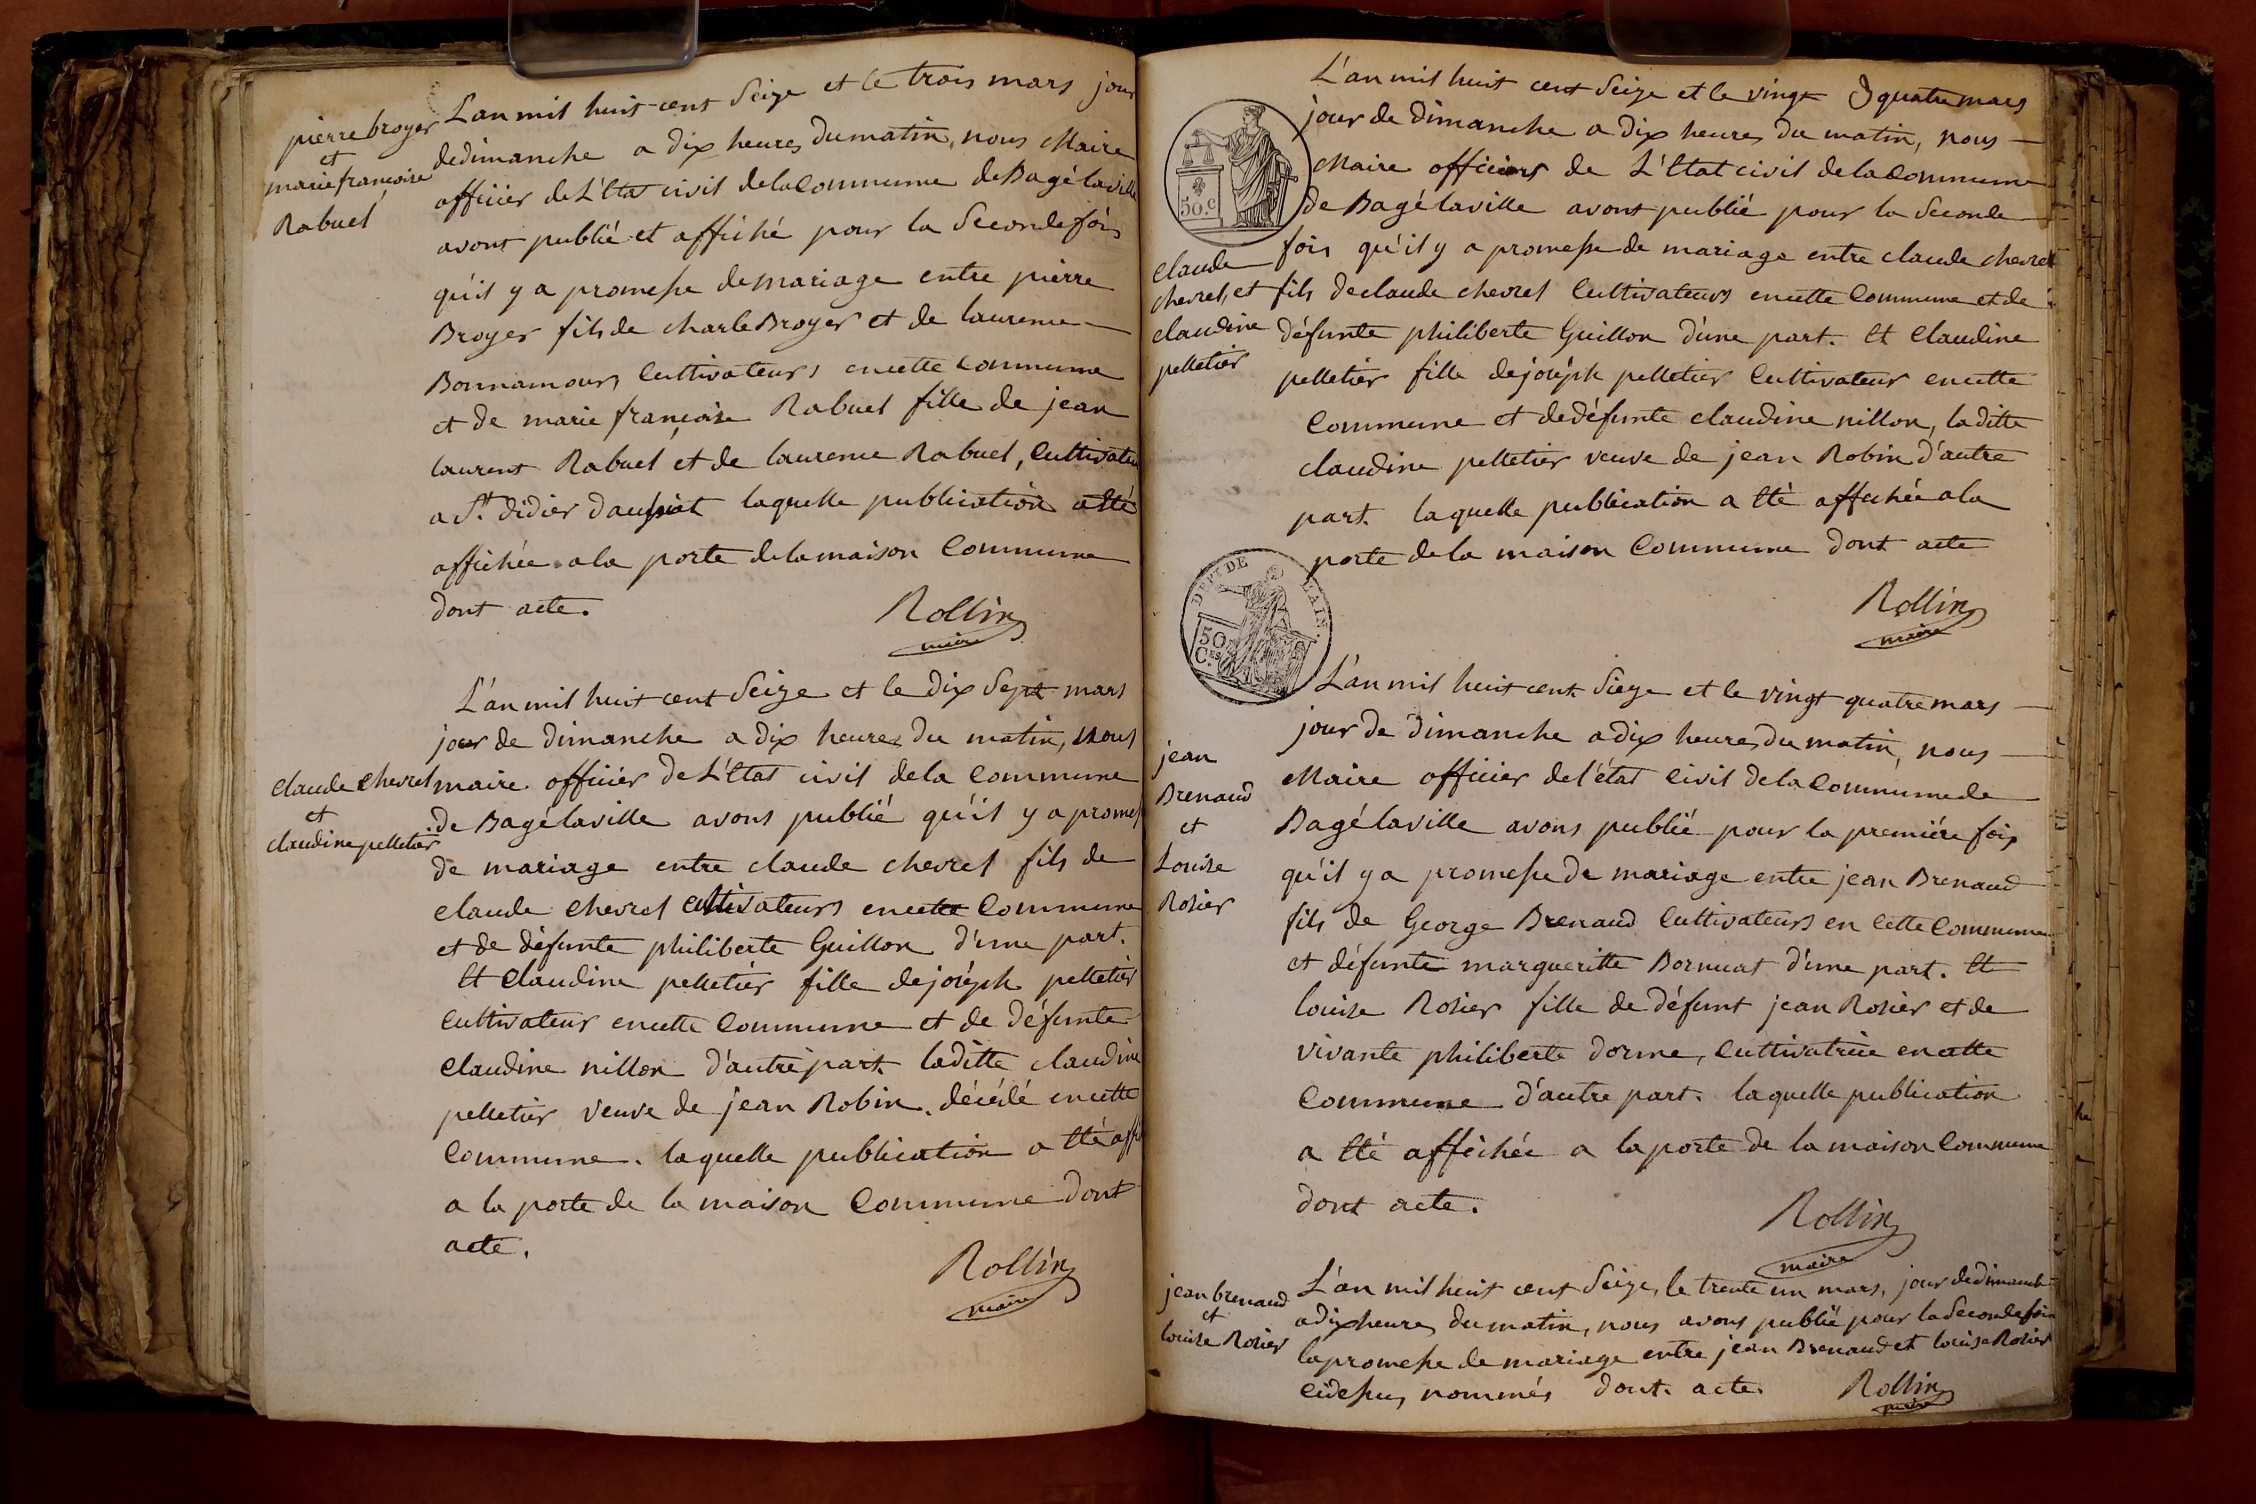 pierre broyer
et
marie francoise
Rabuel
L'an mil huit cent Seize et le trois mars jour
de dimanche a dix heures du matin, nous Maire
officier de L'Etat civil de la Commune de Bagé la ville
avons publié et affiché pour la Seconde fois
qu'il y a promesse de mariage entre pierre
Broyer fils de charle Broyer et de laurence
Bonnamour, Cultivateurs en cette commune
et de marie francoise Rabuel fille de jean
laurent Rabuel et de laurence Rabuel, Cultivateu
a St. didier d'aussiat laquelle publication a Eté
affichée a la porte de la maison Commune
dont acte.
Rollin
maire
claude chevrel
et
claudine pelletier
L'an mil huit cent Seize et le dix Sept mars
jour de dimanche a dix heures du matin, nous
maire officier de L'Etat civil de la Commune
de Bagé la ville avons publié qu'il y a promes
de mariage entre claude chevrel fils de
claude chevrel Cultivateurs en cette Commune
et de défunte philiberte Guillon d'une part.
Et Claudine pelletier fille de joséph pelletier
Cultivateur en cette Commune et de défunte
Claudine nillon d'autre part. laditte claudine
pelletier veuve de jean Robin. décédé en cette
Commune. laquelle publication a Eté affi
a la porte de la maison Commune dont
acte.
Rollin
maire
50.c
claude
chevrel, et
claudine
pelletier
L'an mil huit cent Seize et le vingt & quatre mars
jour de dimanche a dix heures du matin, nous
Maire officiers de L'Etat civil de la Commune
de Bagé la ville avons publié pour la Seconde
fois qu'il y a promesse de mariage entre claude chevrel
fils de claude chevrel Cultivateurs en cette Commune et de
défunte philiberte Guillon d'une part. Et Claudine
pelletier fille de joséph pelletier Cultivateur en cette
Commune et de défunte claudine nillon, laditte
claudine pelletier veuve de jean Robin d'autre
part. laquelle publication a Eté affichée a la
porte de la maison Commune dont acte
Rollin
maire
DÉPT. DE L'AIN.
50
C.es
jean
Brenaud
et
Louise
Rosier
L'an mil huit cent Sieze et le vingt quatre mars
jour de dimanche a dix heures du matin, nous
Maire officier de l'état Civil de la Commune de
Bagé la ville avons publié pour la première fois,
qu'il y a promesse de mariage entre jean Brenaud
fils de George Brenaud Cultivateurs en Cette Commune
et défunte margueritte Bornuat d'une part. Et
louise Rosier fille de défunt jean Rosier et de
vivante philiberte dorme, Cultivatrice en cette
Commune d'autre part. laquelle publication
a Eté affichée a la porte de la maison Commune
dont acte.
Rollin
maire
jean brenaud
et
louise Rosier
L'an mil huit cent Seize, le trente un mars, jour de dimanche
a dix heures du matin, nous avons publié pour la Seconde fois
la promesse de mariage entre jean Brenaud et louise Rosier
cidessus nommés dont acte.
Rollin
maire